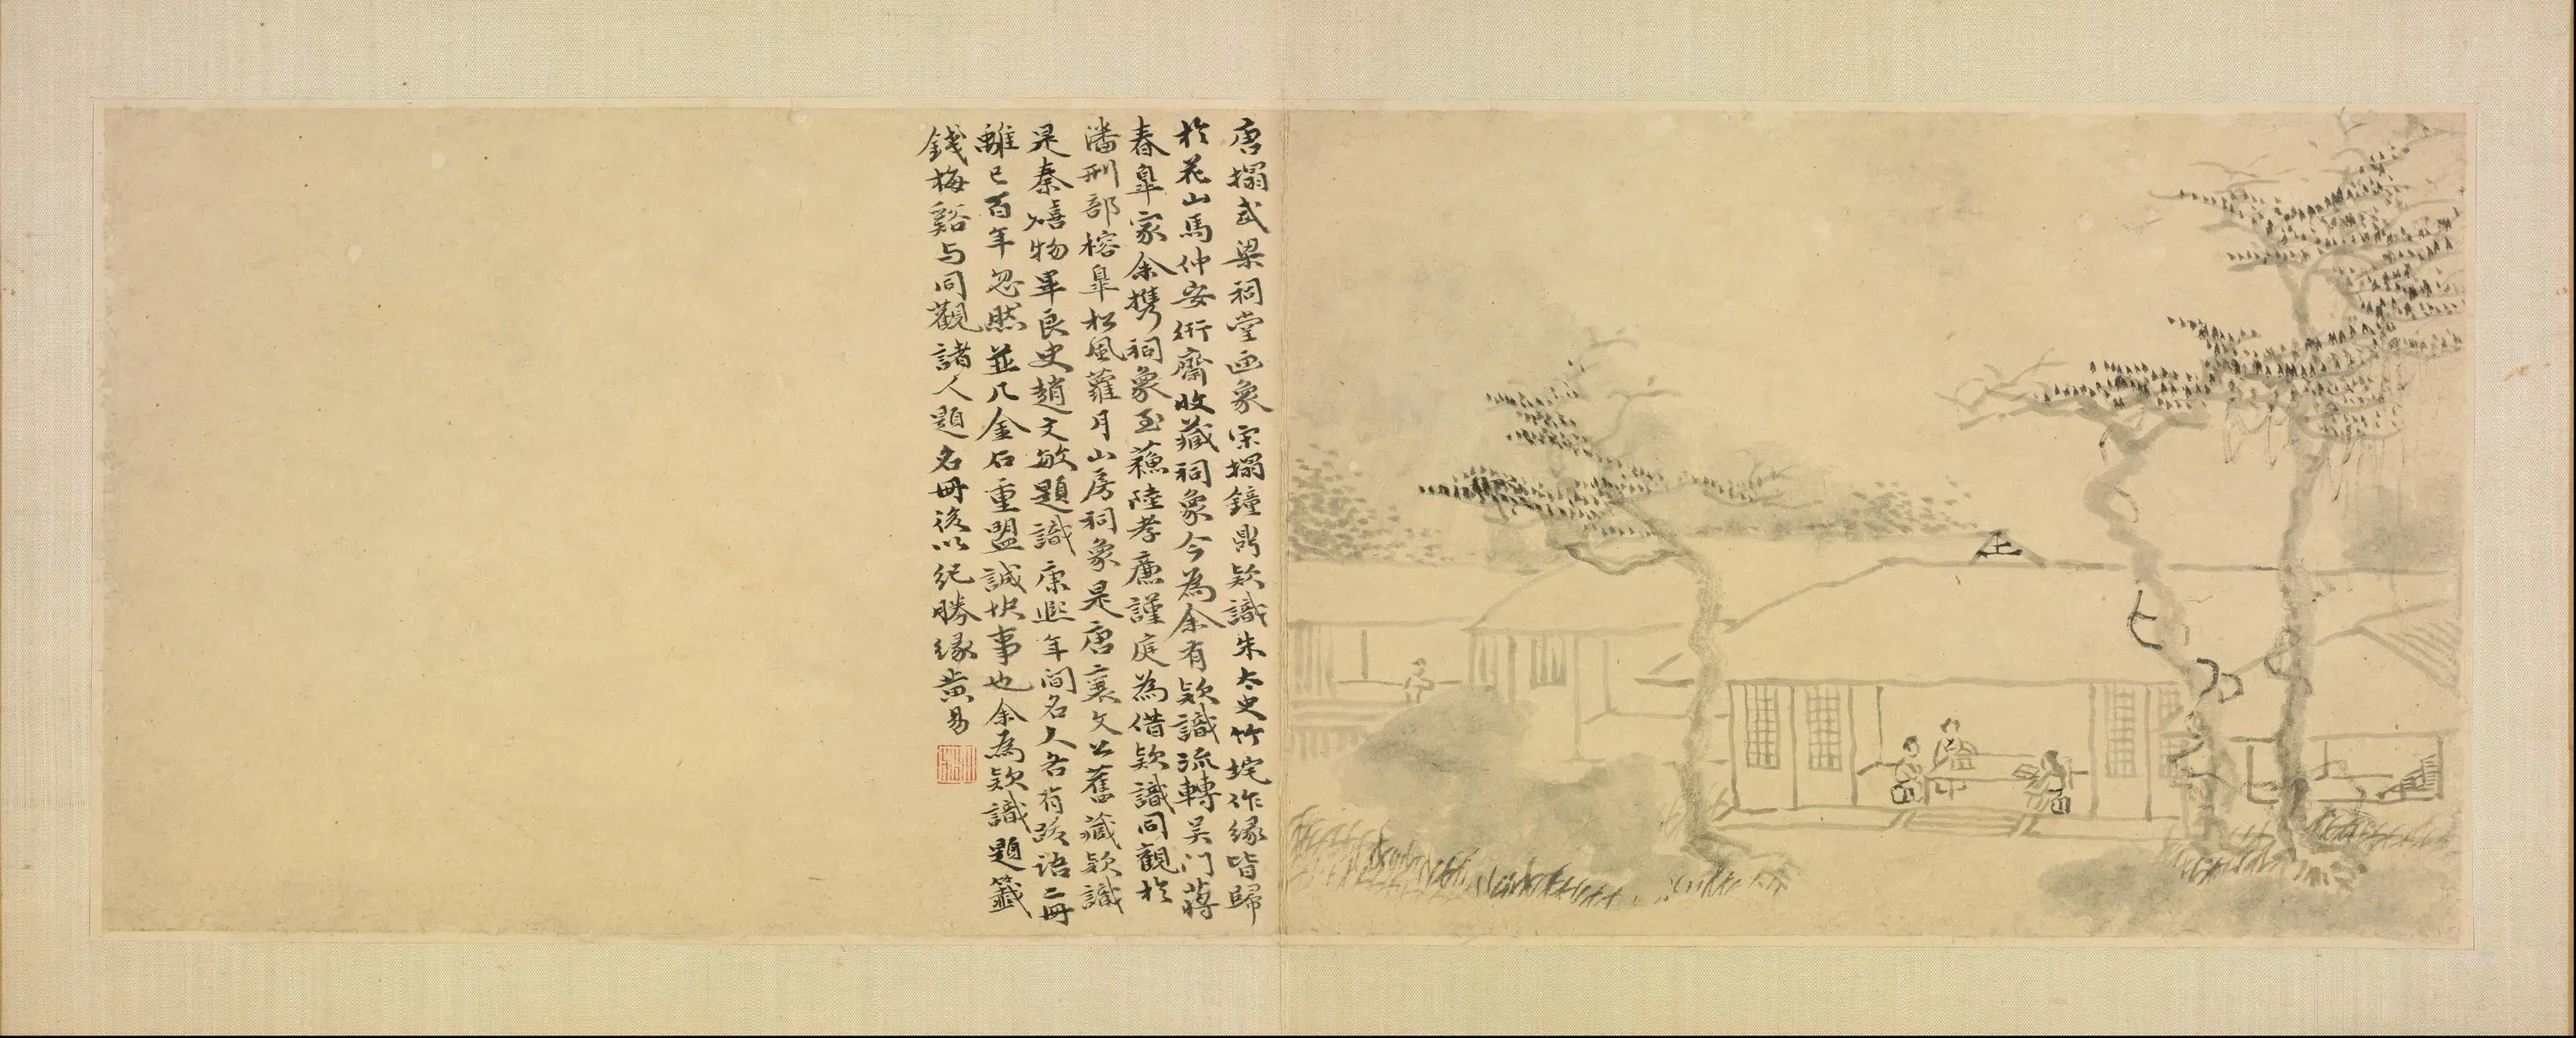 唐搨武梁祠堂画象宋搨鐘鼎欵識朱太史竹垞作緣皆歸
於花山馬仲安衎齋收藏祠象今為余有欵識流轉吴门蔣
春皐家余攜祠象至蘓陸孝廉謹庭為借欵識同觀於
潘刑部榕皐松風蘿月山房祠象是唐襄文公舊藏欵識
是秦熺物畢良史趙文敏題識康熙年间名人各有跋语二冊
離已百年忽然並几金石重盟誠快事也余為欵識題籤
錢梅谿与同觀諸人題名冊後以紀勝緣黄易